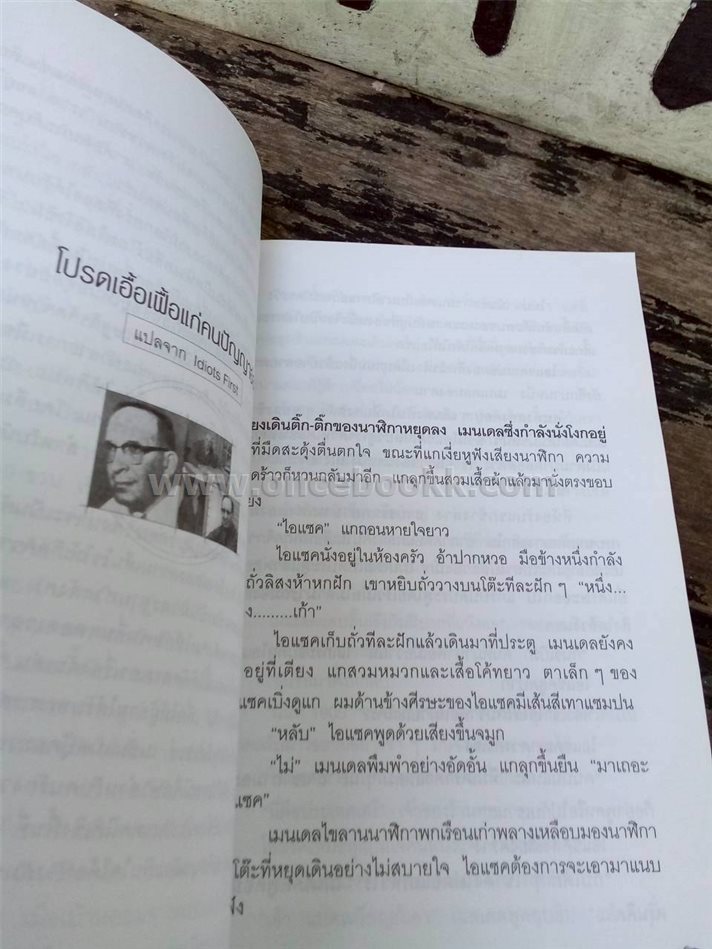 โปรดเอื้อเฟื้อแก่คนปัญญา
แปลจาก Idiots First
ยงเดินติ๊ก-ติ๊กของนาฬิกาหยุดลง เมนเดลซึ่งกำลังนั่งโงกอยู่
ที่มืดสะดุ้งตื่นตกใจ ขณะที่แกเงี่ยหูฟังเสียงนาฬิกา ความ
ดร้าวก็หวนกลับมาอีก แกลุกขึ้นสวมเสื้อผ้าแล้วมานั่งตรงขอบ
ยง
www.oncebookk.com
“ไอแซค” แกถอนหายใจยาว
ไอแซคนั่งอยู่ในห้องครัว อ้าปากหวอ มือข้างหนึ่งกำลัง
ถั่วลิสงห้าหกฝัก เขาหยิบถั่ววางบนโต๊ะทีละฝัก ๆ “หนึ่ง...
ง.........เก้า”
ไอแซคเก็บถั่วทีละฝักแล้วเดินมาที่ประตู เมนเดลยังคง
อยู่ที่เตียง แกสวมหมวกและเสื้อโค้ทยาว ตาเล็ก ๆ ของ
แซคเบิ่งดูแก ผมด้านข้างศีรษะของไอแซคมีเส้นสีเทาแซมปน
“หลับ” ไอแซคพูดด้วยเสียงขึ้นจมูก
“ไม่” เมนเดลพึมพำอย่างอัดอั้น แกลุกขึ้นยืน “มาเถอะ
แซค”
เมนเดลไขลานนาฬิกาพกเรือนเก่าพลางเหลือบมองนาฬิกา
โต๊ะที่หยุดเดินอย่างไม่สบายใจ ไอแซคต้องการจะเอามาแนบ
ฟัง